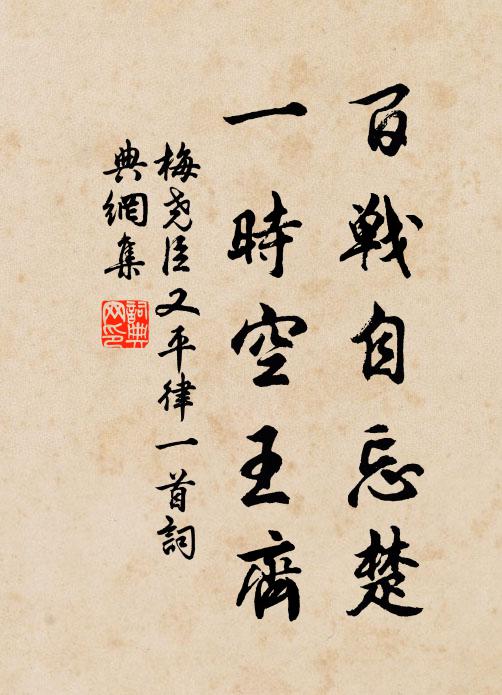 百戰自忘楚
一時空王齊
梅堯臣又平律一首詞
典網集
詞典
网印